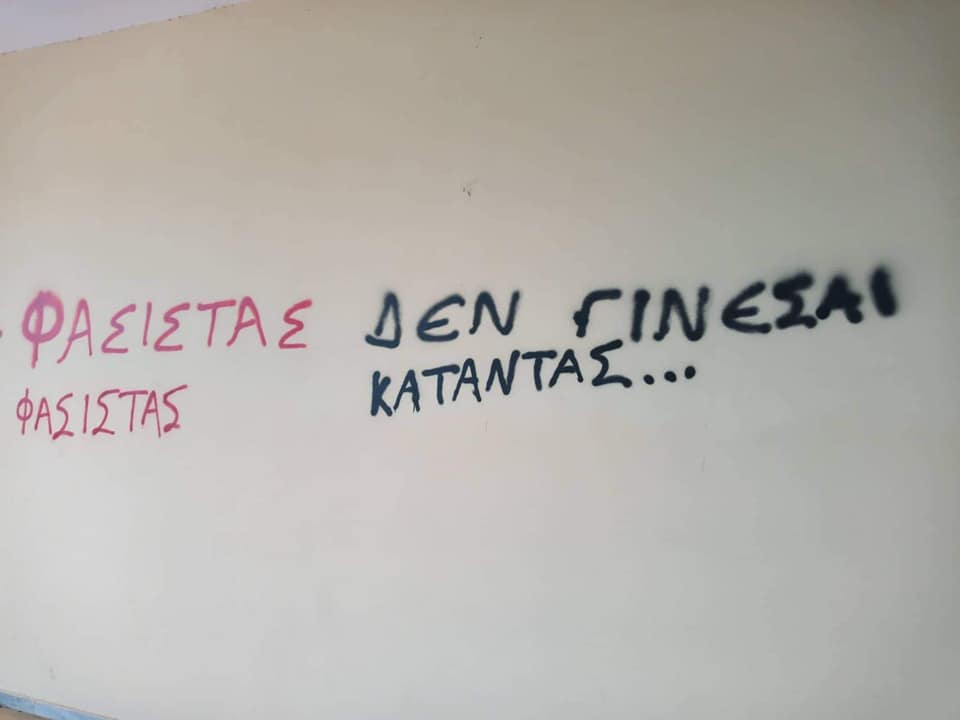 ΦΑΣΙΣΤΑΣ ΔΕΝ ΓΙΝΕΣΑΙ
ΦΑΣΙΣΤΑΣ ΚΑΤΑΝΤΑΣ...